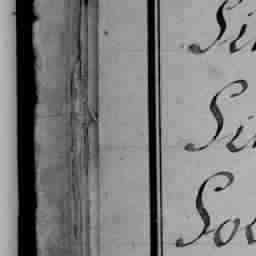 Si
Si
Soc